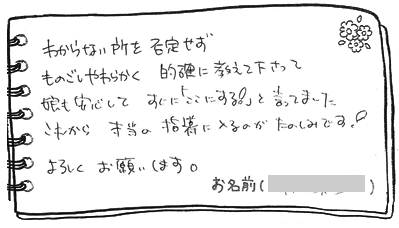 わからない所を否定せず
ものごしやわらかく 的確に教えて下さって
娘も安心して すぐに「ここにする!」と言ってました
これから 本当の指導に入るのが たのしみです!
よろしく お願いします。
お名前( )